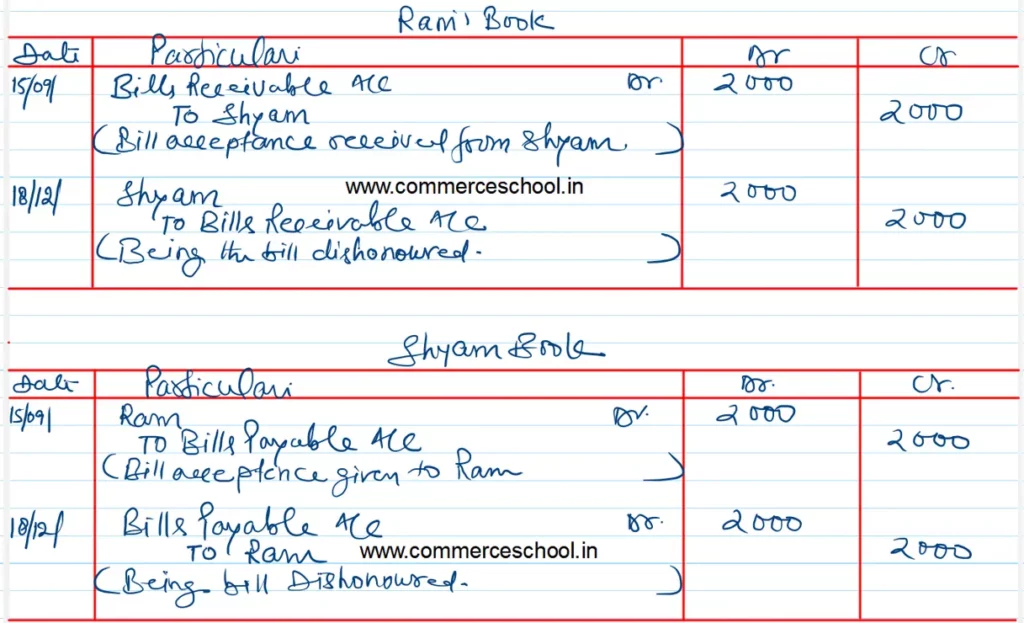 Ram's Book
Date Particulars Dr Cr
15/09/ Bills Receivable A/C Dr. 2000
To Shyam 2000
(Bill acceptance received from Shyam.)
18/12/ Shyam www.commerceschool.in 2000
To Bills Receivable A/C 2000
(Being the bill dishonoured.)
Shyam Book
Date Particulars Dr. Cr.
15/09/ Ram Dr. 2000
To Bills Payable A/C 2000
(Bill acceptance given to Ram)
18/12/ Bills Payable A/C Dr. 2000
To Ram www.commerceschool.in 2000
(Being bill Dishonoured.)